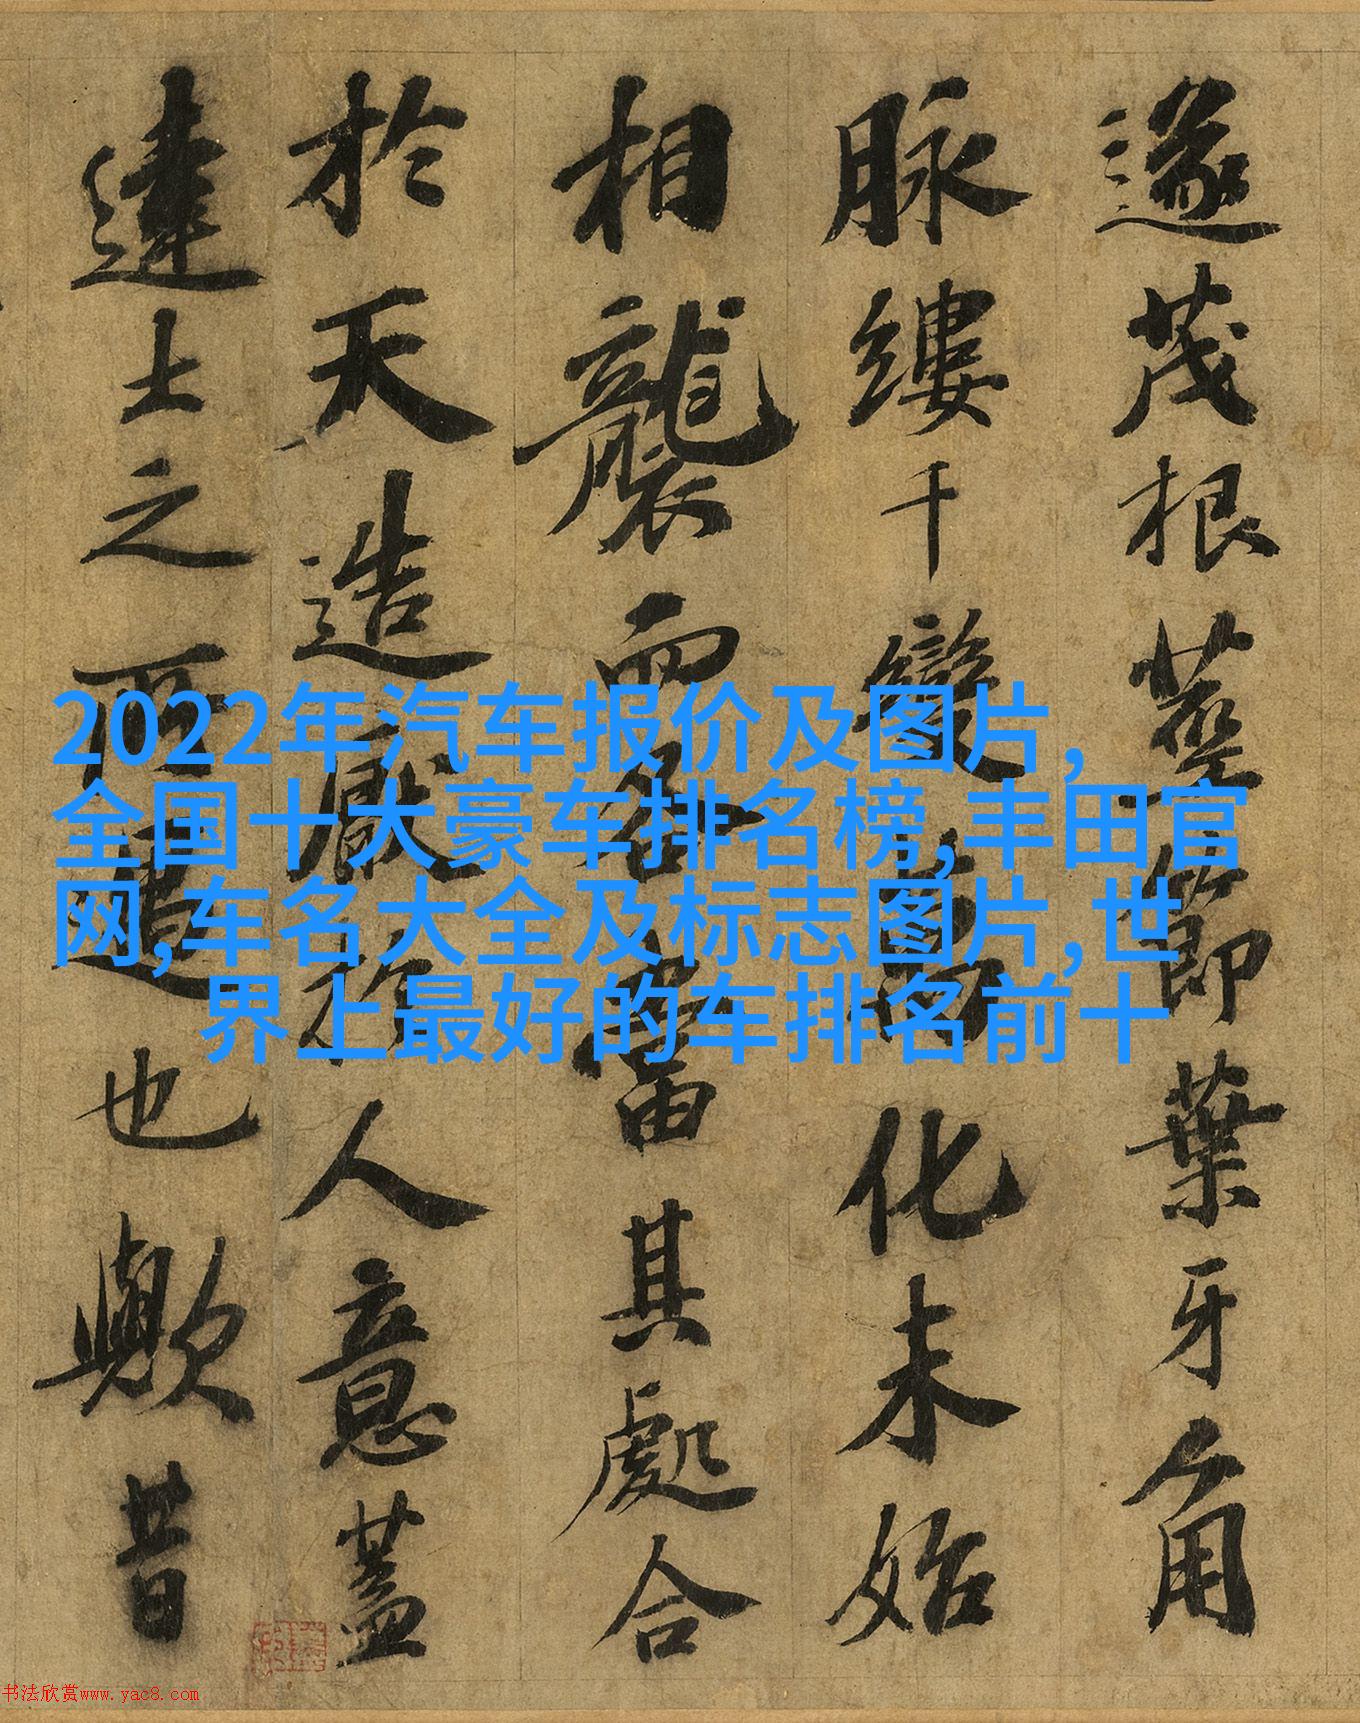 遂茂根莖節葉牙角
脉縷千變萬化未始
相襲而各當其處合
於天造厭於人意蓋
達士之所寓也歟昔
2022年汽车报价及图片,
全国十大豪车排名榜,丰田官
网,车名大全及标志图片,世
界上最好的车排名前十
书法欣赏www.yac8.com